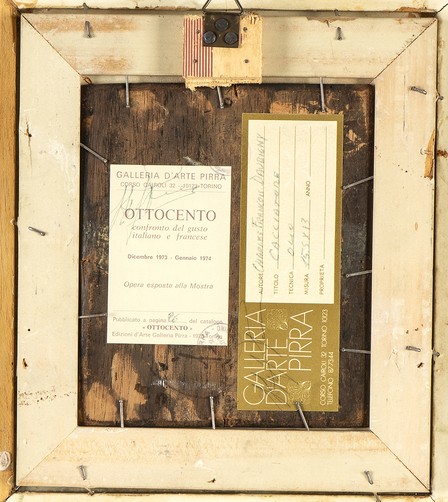 GALLERIA D'ARTE PIRRA
CORSO CAIROLI 32 - 10123 TORINO
OTTOCENTO
confronto del gusto
italiano e francese
Dicembre 1973 - Gennaio 1974
Opera esposta alla Mostra
Pubblicato a pagina 86 del catalogo
« OTTOCENTO »
Edizioni d'Arte Galleria Pirra - 1973 Torino
AUTORE
TITOLO CACCIATORE
TECNICA OLIO
MISURA
ANNO
PROPRIETÀ
GALLERIA
D'ARTE
PIRRA
CORSO CAIROLI 32 TORINO 10123
TELEFONO 877344